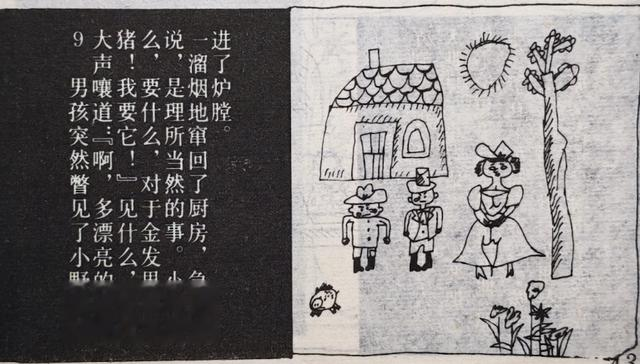 9 男孩突然瞥见了小野
大声嚷道:『啊,多漂亮的
猪!我要它!』见什么,
么,要什么,对于金发男
说,是理所当然的事。小
一溜烟地窜回了厨房,急
进了炉膛。